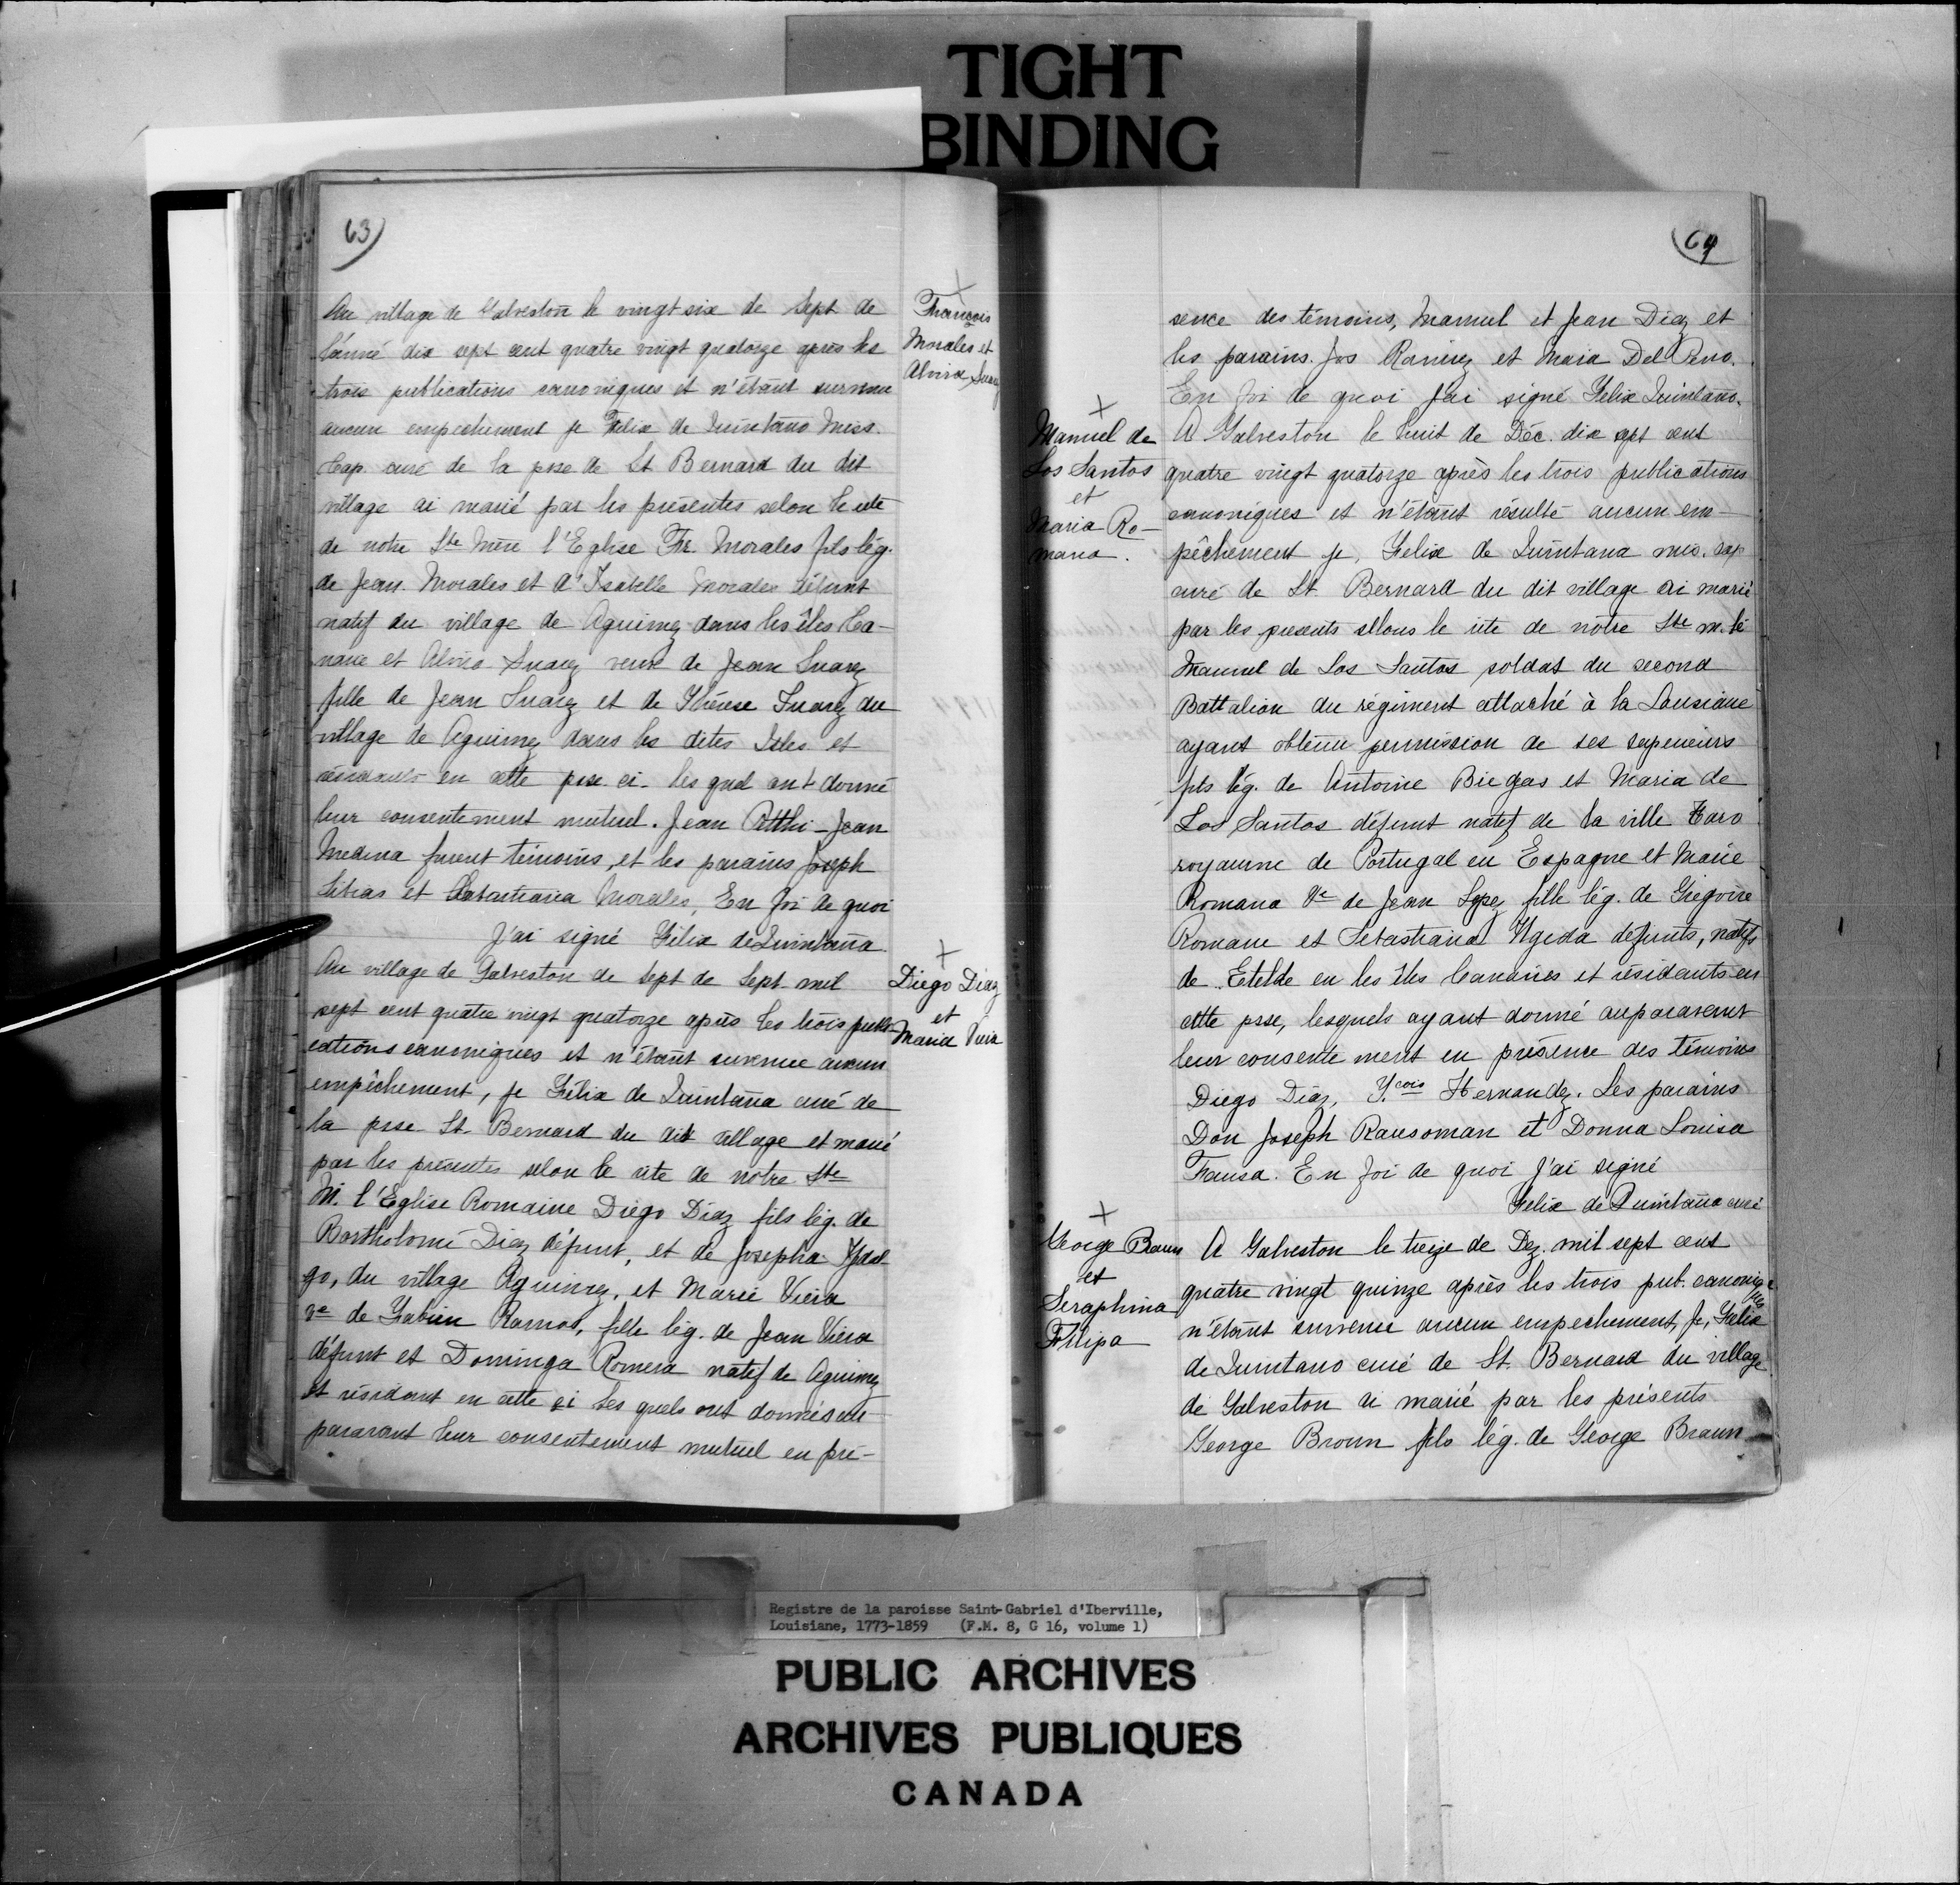 TIGHT
BINDING
63
François
Morales et
Alvira Suarez
Au village de Galveston le vingt six de Sept de
l'année dix sept cent quatre vingt quatorze après les
trois publications canoniques et n'étant survenu
aucun empechement je Felix de Quintano Miss.
Cap. curé de la psse de St Bernard du dit
village ai marié par les présentes selon le rite
de notre Ste Mère l'Eglise Fr. Morales fils lég.
de Jean Morales et d'Isabelle Morales défunt
natif du village de Aguimez dans les îles Ca-
narie et Alvira Suarez veuve de Jean Suarez
fille de Jean Suarez et de Thérèse Suarez du
village de Aguimez dans les dites Isles et
résidants en cette psse ci. les quel ont donné
leur consentement mutuel. Jean Jean
Medina furent témoins, et les parains Joseph
et Morales, En foi de quoi
J'ai signé Félix de Quintaña
Diego Diaz
et
Maria Viera
Au village de Galveston de Sept de Sept mil
sept cent quatre vingt quatorze après les trois publi-
cations canoniques et n'étant survenue aucun
empêchement, je Félix de Quintaña curé de
la psse St. Bernard du dit village et marié
par les présentes selon le rite de notre Ste
M. l'Eglise Romaine Diego Diaz fils lég. de
Bartholomé Diaz défunt, et de Josepha
go, du village Aguimez, et Marie Viera
ve de Fabien Ramos, fille lég. de Jean Viera
défunt et Dominga Romera natif de Aguimez
et résidant en cette ci les quels ont donnés au-
paravant leur consentement mutuel en pré-
64
sence des témoins, Manuel et Jean Diez et
les parains. Jos Ramirez et Maia Del
En foi de quoi j'ai signé Felix Quintano.
Manuel de
Los Santos
et
Maria Ro-
mana.
A Galveston le huit de Déc. dix sept cent
quatre vingt quatorze après les trois publications
canoniques et n'étant résulté aucun em-
pêchement je, Felix de Quintana mis. cap
curé de St. Bernard du dit village ai marié
par les presents sellons le rite de notre Ste m. lé
Manuel de Los Santos soldat du second
Battalion du régiment attaché à la Lousiane
ayant obtenu permission de ses superieurs
fils lég. de Antoine Biegas et Maria de
Los Santos défunt natif de la ville Faro
royaume de Portugal en Espagne et Marie
Romana Ve de Jean Lopez fille lég. de Grégoire
Romane et Sebastiana défunts, natifs
de Etelde en les îles Canaries et résidants en
cette psse, lesquels ayant donné auparavent
leur consente ment en présence des témoins
Diego Diáz, Hernandez. Les parains
Don Joseph Ransoman et Donna Louisa
Fausa. En foi de quoi j'ai signé
Felix de Quintaña curé
George Braun
et
Seraphina
Filipa
A Galveston le treize de Dez. mil sept cent
quatre vingt quinze après les trois pub. canoniques
n'étant survenu aucun empechement, Je, Felix
de Quintano curé de St. Bernard du village
de Galveston ai marié par les présents
George Broun fils lég. de George Braun
Registre de la paroisse Saint-Gabriel d'Iberville,
Louisiane, 1773-1859 (F.M. 8, G 16, volume 1)
PUBLIC ARCHIVES
ARCHIVES PUBLIQUES
CANADA